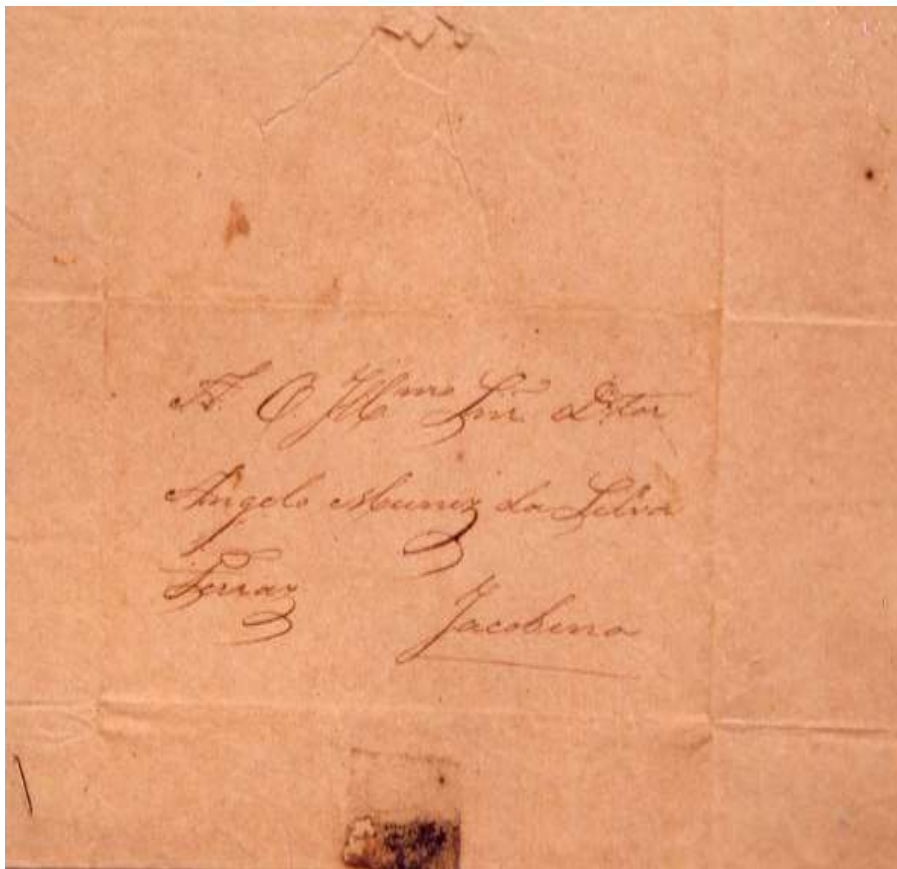 A. O Ill.mo Snr. D.tor
Angelo Muniz da Silva
Ferraz Jacobina